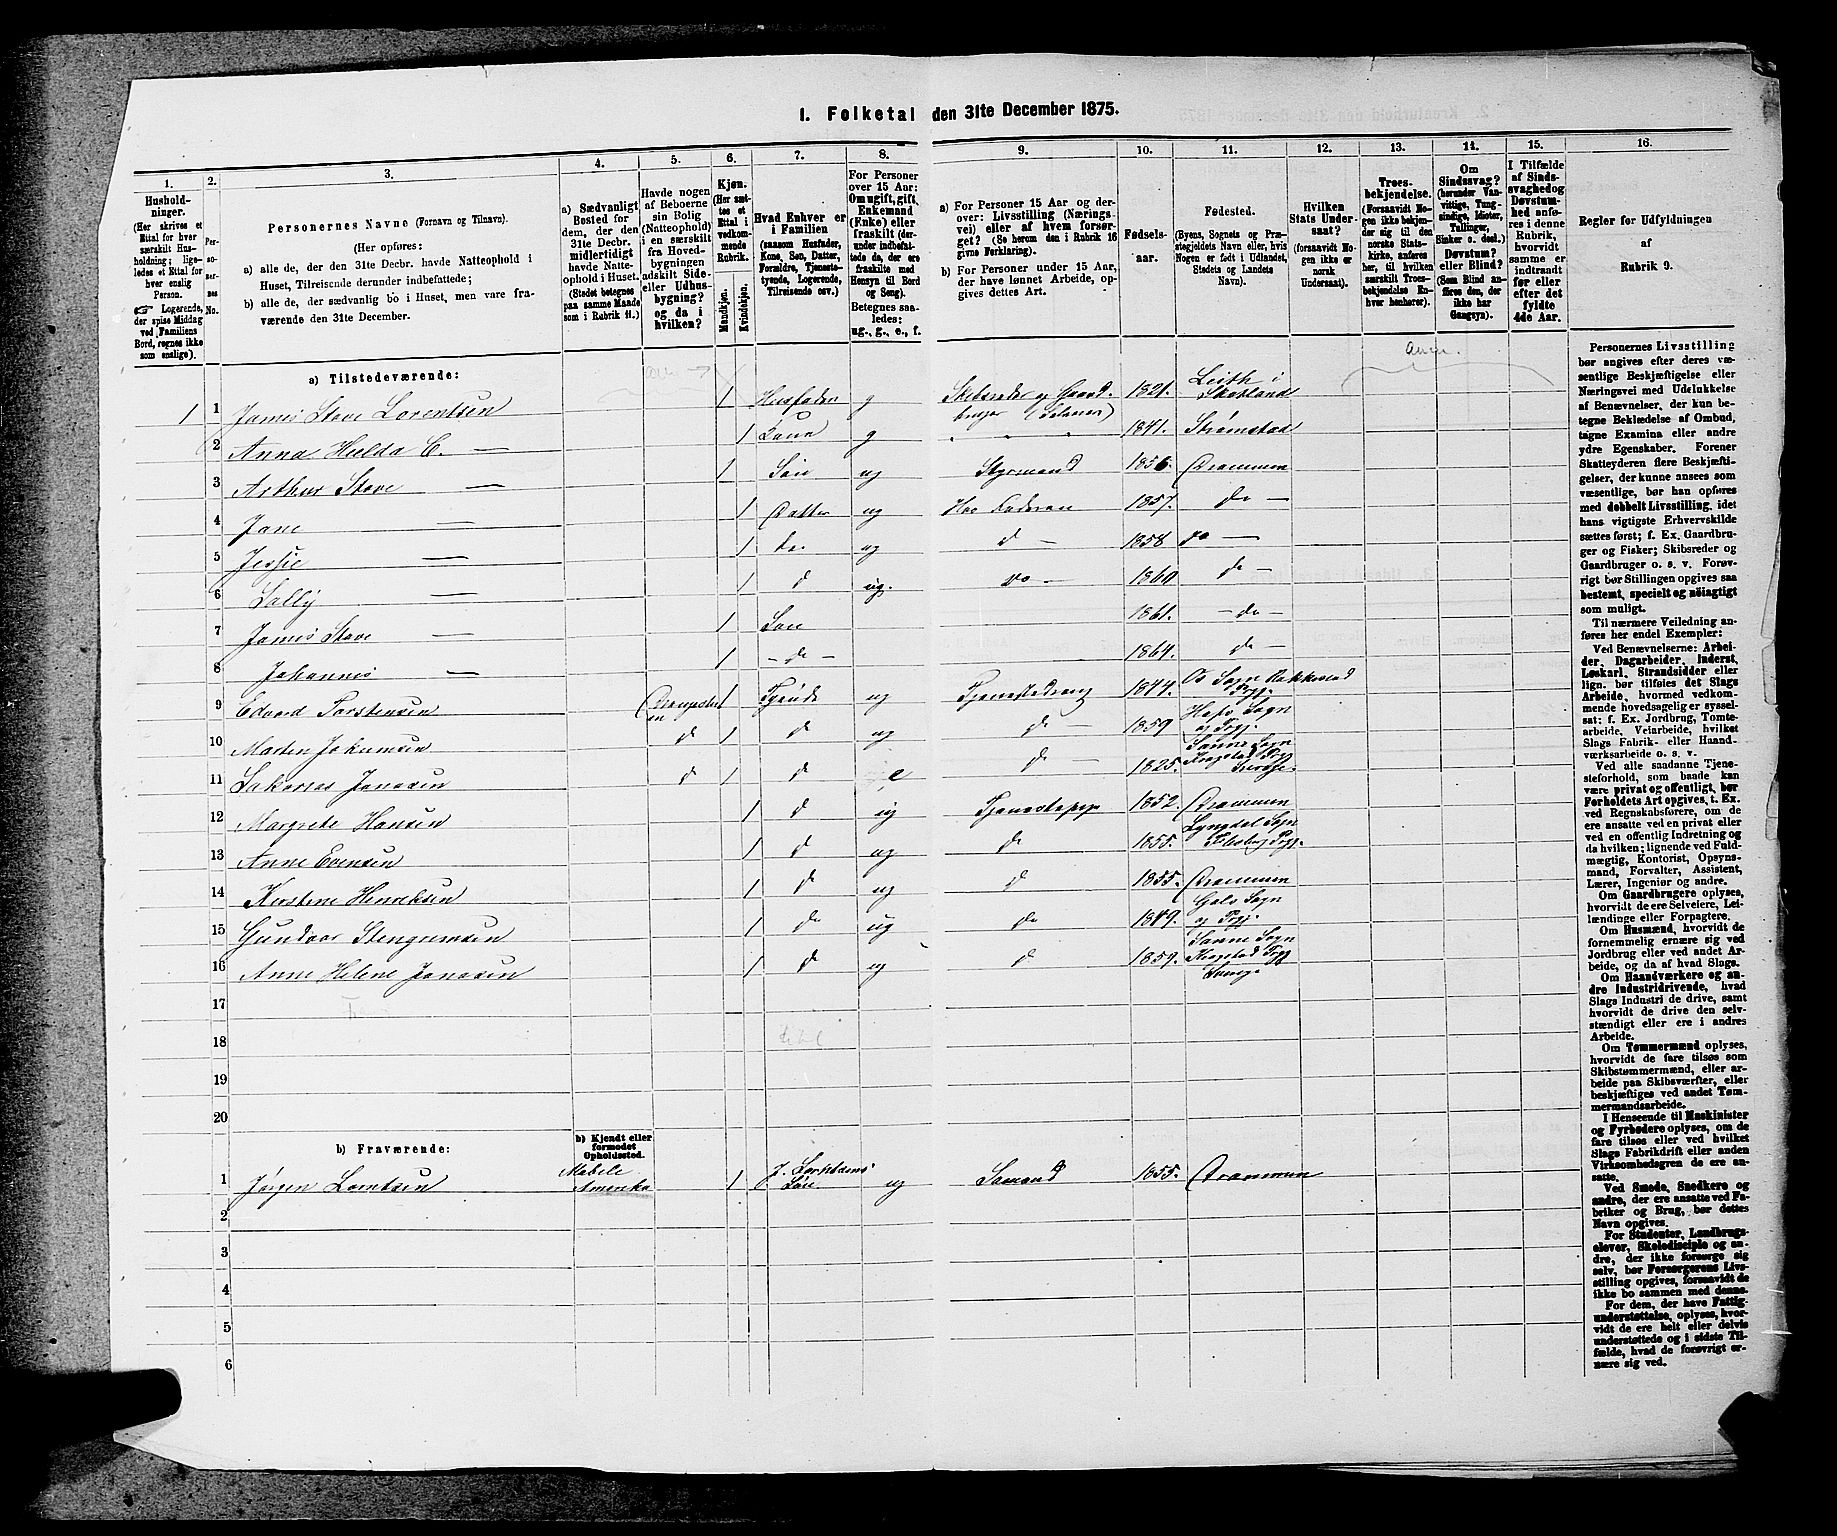 1. Folketal den 31te December 1875.
1.
2.
3.
4.
5.
6.
7.
8.
9.
10.
11.
12.
13.
14.
15.
16.
Hushold-
ninger.
(Her skrives et
Ettal for hver
særskilt Hus-
holdning; lige-
ledes et Ettal for
hver enslig
Person.
☞ Logerende,
der spise Middag
ved Familiens
Bord, regnes ikke
som enslige).
Per-
so-
ner-
nes
No.
Personernes Navne (Fornavn og Tilnavn).
(Her opføres:
a) alle de, der den 31te Decbr. havde Natteophold i
Huset, Tilreisende derunder indbefattede;
b) alle de, der sædvanlig bo i Huset, men vare fra-
værende den 31te December.
a) Sædvanligt
Bosted for
dem, der den
31te Decbr.
midlertidigt
havde Natte-
ophold i Huset.
(Stedet betegnes
paa samme Maade
som i Rubrik 11.)
Havde nogen
af Beboerne
sin Bolig
(Natteophold)
i en særskilt
fra Hoved-
bygningen
adskilt Side-
eller Udhus-
bygning?
og da i
hvilken?
Kjøn.
(Her sæt-
tes et
Ettal i
vedkom-
mende
Rubrik.
Mandkjøn.
Kvindekjøn.
Hvad Enhver er
i Familien
(saasom Husfader,
Kone, Søn, Datter,
Forældre, Tjeneste-
tyende, Logerende,
Tilreisende osv.)
For Personer
over 15 Aar:
Om ugift, gift,
Enkemand
(Enke) eller
fraskilt (der-
under indbefat-
tede de, der ere
fraskilte med
Hensyn til Bord
og Seng).
Betegnes saa-
ledes:
ug., g., e., f.
a) For Personer 15 Aar og der-
over: Livsstilling (Nærings-
vei) eller af hvem forsør-
get? (Se herom den i Rubrik 16
givne Forklaring).
b) For Personer under 15 Aar,
der have lønnet Arbeide, op-
gives dettes Art.
Fødsels-
aar.
Fødested.
(Byens, Sognets og Præ-
stegjeldets Navn eller, hvis
Nogen er født i Udlandet,
Stedets og Landets
Navn).
Hvilken
Stats Under-
saat?
(forsaavidt No-
gen ikke er
norsk
Undersaat).
Troes-
bekjendelse.
(Forsaavidt No-
gen ikke bekjen-
der sig til den
norske Stats-
kirke, anføres
her, til hvilken
særskilt Troes-
bekjendelse En-
hver henhører).
Om
Sindssvag?
(herunder Van-
vittige, Tung-
sindige, Idioter,
Tullinger,
Sinker o. desl.)
Døvstum?
eller Blind?
(Som Blind an-
føres den, der
ikke har
Gangsyn).
I Tilfælde
af Sinds-
svaghed og
Døvstum-
hed anfø-
res i denne
Rubrik,
hvorvidt
samme er
indtraadt
før eller
efter det
fyldte
4de Aar.
Regler for Udfyldningen
af
Rubrik 9.
a) Tilstedeværende:
1 1 James Stove Lorentsen 1 Husfader g Skibsreder og Gaard-
bruger (Selveier) 1821. Leith i
Skotland
2 Anna Hulda C. — 1 Kone g " " " 1841. Strømstad
3 Arthur Stove — 1 Søn ug Styrmand 1856. Drammen
4 Jane — 1 Datter ug Hos Faderen 1857. do —
5 Jessie — 1 do. ug d — 1858 do —
6 Sally — 1 d ug. do — 1860 do —
7 James Stove — 1 Søn 1861. — do —
8 Johannes — 1 — do — 1864. do —
9 Edvard Torstensen 1 Tjende ug Tjenestedreng 1844. Os Sogn Rakkestad
Prgj.
10 Morten Johumsen d 1 d ug d — 1859 Hofs Sogn
og Prgj.
11 Sakarias Jonasen d 1 d e d — 1825. Sanne Sogn
Krogstad Prgj
Sverige.
12 Margrete Hansen 1 d ug Tjenestepige 1852. Drammen
13 Anne Evensen 1 d ug do 1855. Lyngdal Sogn
Flesberg Prgj.
14 Kirstine Henriksen 1 d ug d 1855. Drammen
15 Gundvor Stengrimsen 1 do ug do 1849. Gols Sogn
og Prgj.
16 Anne Helene Jonasen 1 d ug d 1859. Sanne Sogn
Krogstad Prgj
Sverige
17
18
19
20
b) Fraværende:
b) Kjendt eller
formodet
Opholdssted.
1 Jørgen Lorentsen Mobile
Amerika 1 J. Lorentsens
Søn ug Sømand 1855. Drammen
2
3
4
5
6
Personernes Livsstilling
bør angives efter deres væ-
sentlige Beskjæftigelse eller
Næringsvei med Udelukkelse
af Benævnelser, der kun be-
tegne Beklædelse af Ombud,
tagne Examina eller andre
ydre Egenskaber. Forener
Skatteyderen flere Beskjæfti-
gelser, der kunne ansees som
væsentlige, bør han opføres
med dobbelt Livsstilling, idet
hans vigtigste Erhvervskilde
sættes først; f. Ex. Gaardbru-
ger og Fisker; Skibsreder og
Gaardbruger o. s. v. Forøv-
rigt bør Stillingen opgives saa
bestemt, specielt og nøiagtigt
som muligt.
Til nærmere Veiledning an-
føres her endel Exempler:
Ved Benævnelserne: Arbei-
der, Dagarbeider, Inderst,
Løskarl, Strandsidder eller
lign. bør tilføies det Slags
Arbeide, hvormed vedkom-
mende hovedsagelig er syssel-
sat; f. Ex. Jordbrug, Tomte-
arbeide, Veiarbeide, hvilket
Slags Fabrik- eller Haand-
værksarbeide o. s. v.
Ved alle saadanne Tjene-
steforhold, som baade kan
være privat og offentligt, bør
Forholdets Art opgives, t. Ex.
ved Regnskabsførere, om de
ere ansatte ved en privat eller
ved en offentlig Indretning og
da hvilken; lignende ved Fuld-
mægtig, Kontorist, Opsyns-
mand, Forvalter, Assistent,
Lærer, Ingeniør og andre.
Om Gaardbrugere oplyses,
hvorvidt de ere Selveiere, Lei-
lændinge eller Forpagtere.
Om Husmænd, hvorvidt de
fornemmelig ernære sig ved
Jordbrug eller ved andet Ar-
beide, og da af hvad Slags.
Om Haandværkere og an-
dre Industridrivende, hvad
Slags Industri de drive, samt
hvorvidt de drive den selv-
stændigt eller ere i andres
Arbeide.
Om Tømmermænd oplyses,
hvorvidt de fare tilsøs som
Skibstømmermænd, eller ar-
beide paa Skibsværfter, eller
beskjæftiges ved andet Tøm-
mermandsarbeide.
I Henseende til Maskinister
og Fyrbødere oplyses, om de
fare tilsøs eller ved hvilket
Slags Fabrikdrift eller anden
Virksomhedsgren de ere an-
satte.
Ved Smede, Snedkere og
andre, der ere ansatte ved Fa-
briker og Brug, bør dettes
Navn opgives.
For Studenter, Landbrugs-
elever, Skoledisciple og an-
dre, der ikke forsørge sig
selv, bør Forsørgerens Livs-
stilling opgives, forsaavidt de
ikke bo sammen med denne.
For dem, der have Fattig-
understøttelse, oplyses, hvor-
vidt de ere helt eller delvis
understøttede og i sidste Til-
fælde, hvad de forøvrigt er-
nære sig ved.